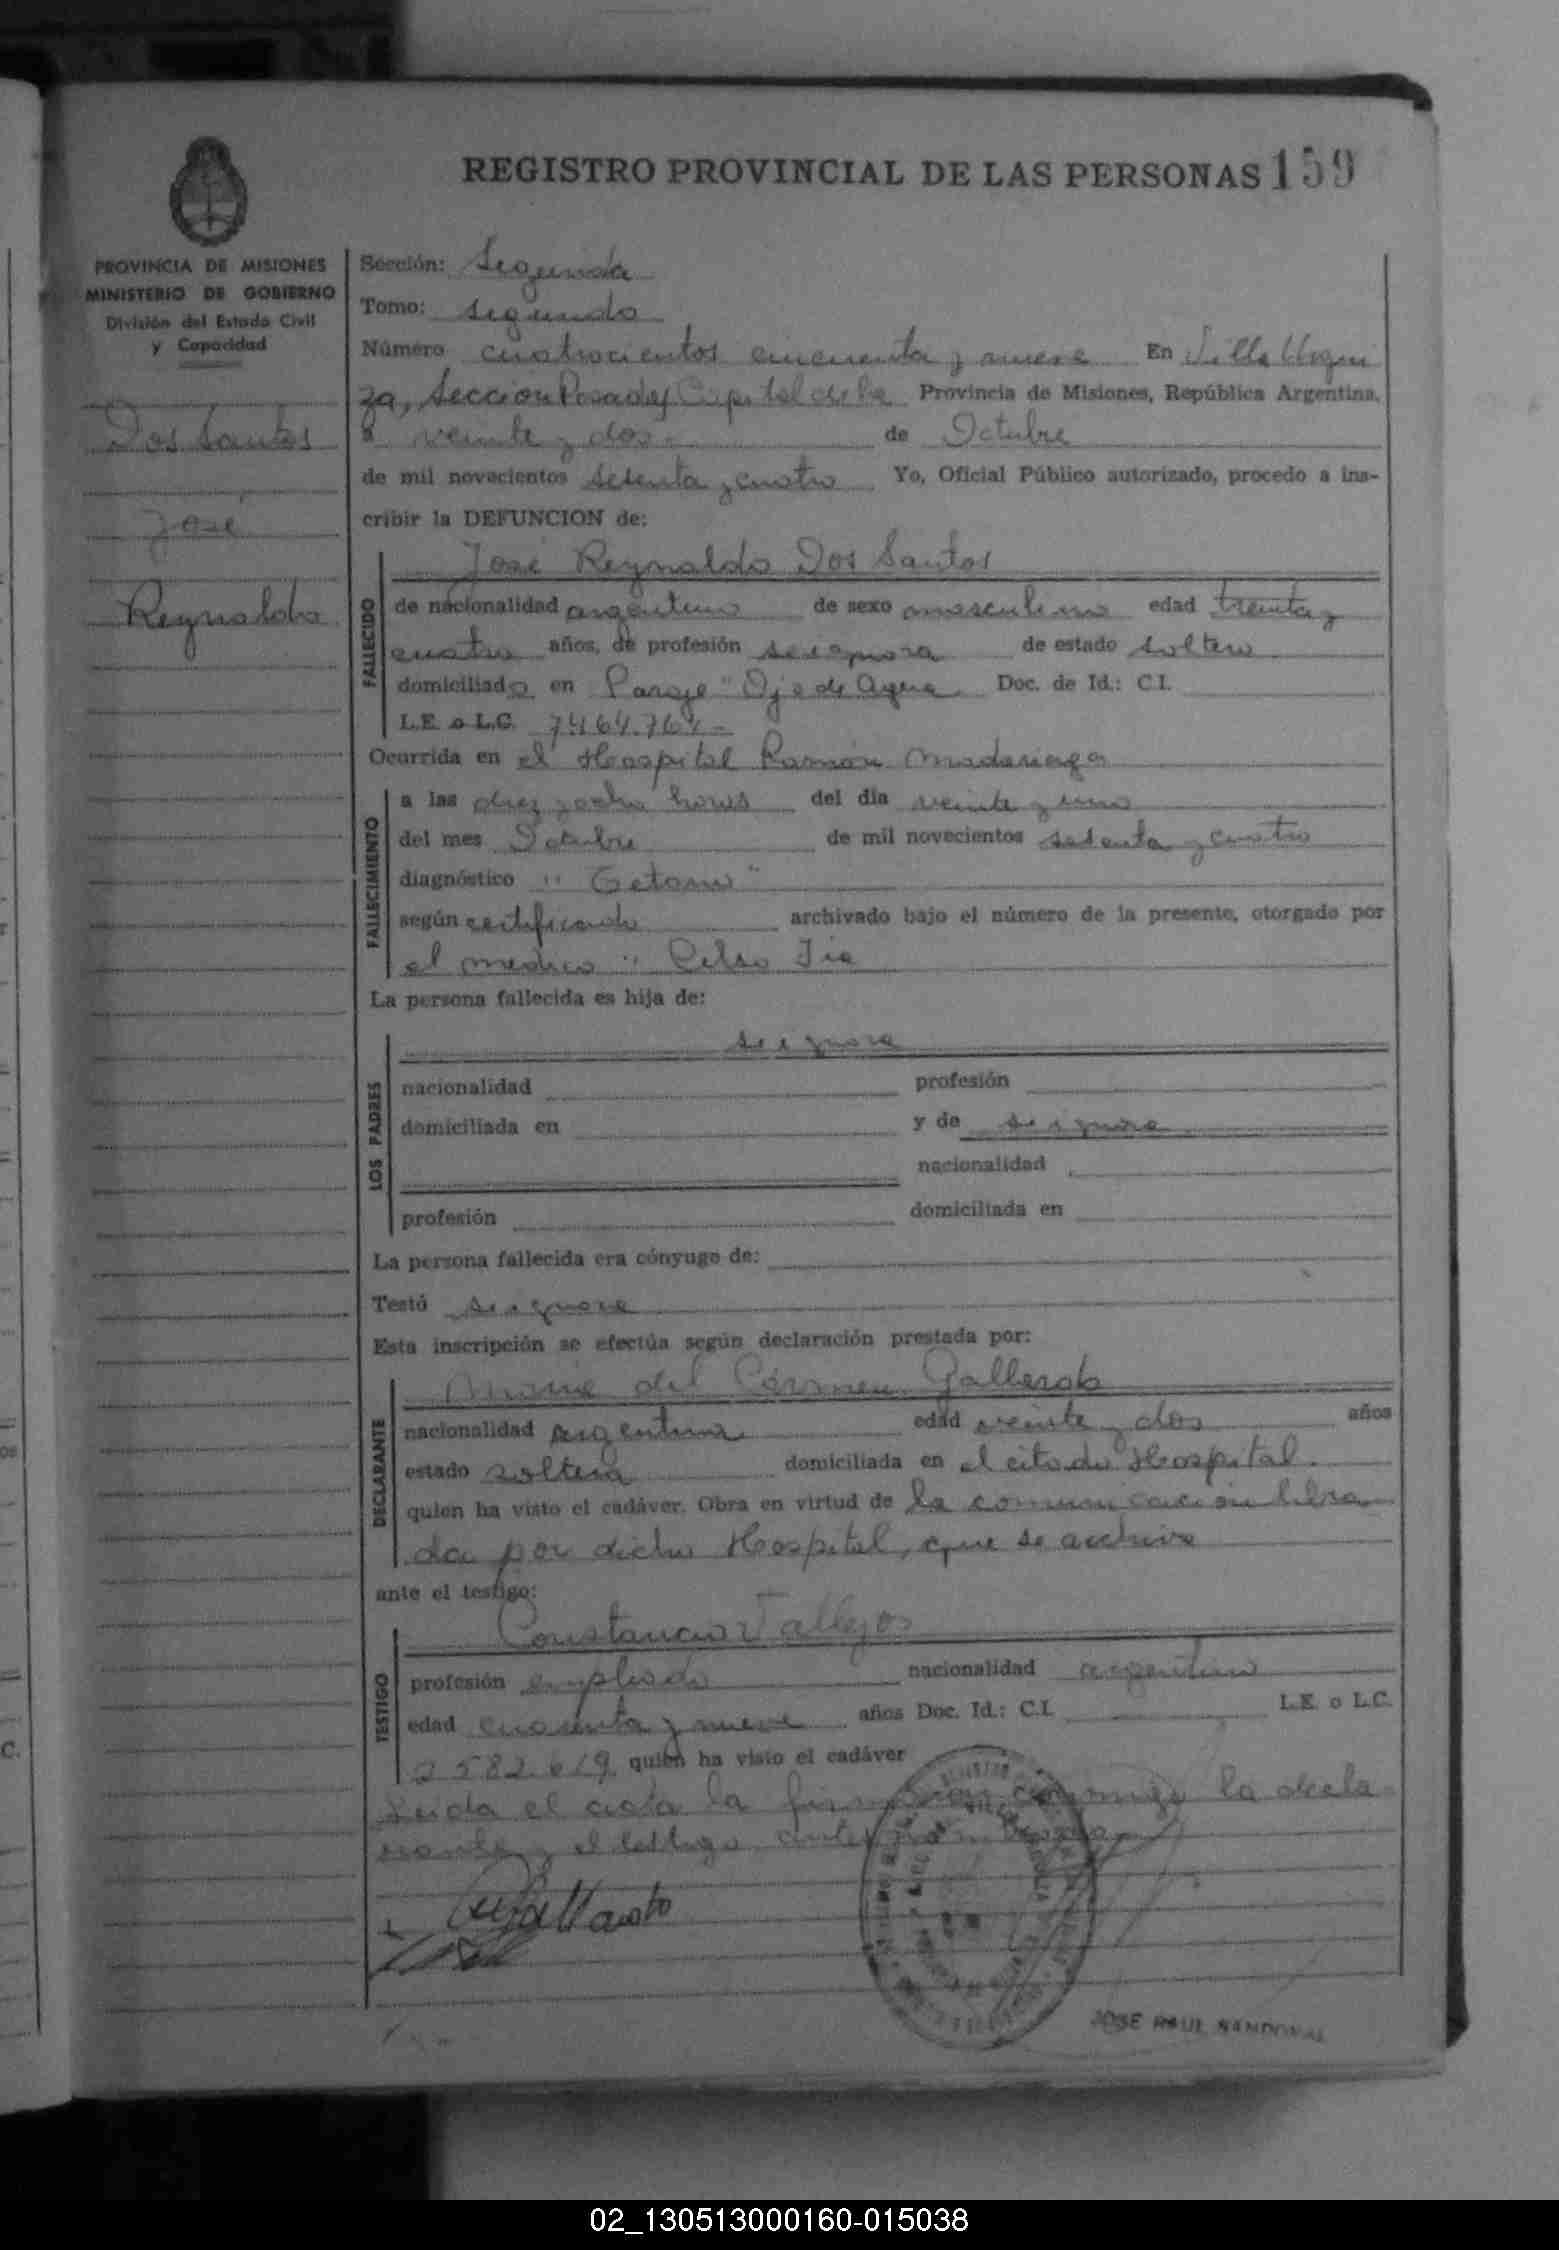 REGISTRO PROVINCIAL DE LAS PERSONAS 159
PROVINCIA DE MISIONES
MINISTERIO DE GOBIERNO
División del Estado Civil
y Capacidad
Dos Santos
José
Reynaldo
Sección: Segunda
Tomo: segundo
Número cuatrocientos cincuenta y nueve En Villa Urqui
za, Sección Posadas Capital de la Provincia de Misiones, República Argentina,
a veinte y dos de Octubre
de mil novecientos setenta y cuatro Yo, Oficial Público autorizado, procedo a ins-
cribir la DEFUNCION de:
FALLECIDO
José Reynaldo Dos Santos
de nacionalidad argentino de sexo masculino edad treinta y
cuatro años, de profesión se ignora de estado soltero
domiciliado en Paraje "Ojo de Agua Doc. de Id.: C.I.
L.E. o L.C. 7.464.764-
Ocurrida en el Hospital Ramón Madariaga
FALLECIMIENTO
a las diez y ocho horas del día veinte y uno
del mes Octubre de mil novecientos setenta y cuatro
diagnóstico "Tetano"
según certificado archivado bajo el número de la presente, otorgado por
el médico " Celso
La persona fallecida es hija de:
LOS PADRES
se ignora
nacionalidad profesión
domiciliada en y de se ignora
nacionalidad
profesión domiciliada en
La persona fallecida era cónyuge de:
Testó se ignora
Esta inscripción se efectúa según declaración prestada por:
DECLARANTE
María del Cármen
nacionalidad argentina edad veinte y dos años
estado soltera domiciliada en el citado Hospital.
quien ha visto el cadáver. Obra en virtud de la comunicación libra
da por dicho Hospital, que se archiva
ante el testigo:
TESTIGO
Constancio Vallejos
profesión empleado nacionalidad argentino
edad cuarenta y nueve años Doc. Id.: C.I. L.E. o L.C.
2582.619 quien ha visto el cadáver
Leida el acta la firman conmigo la decla
rante y el testigo
JOSE RAUL SANDOVAL
02_130513000160-015038